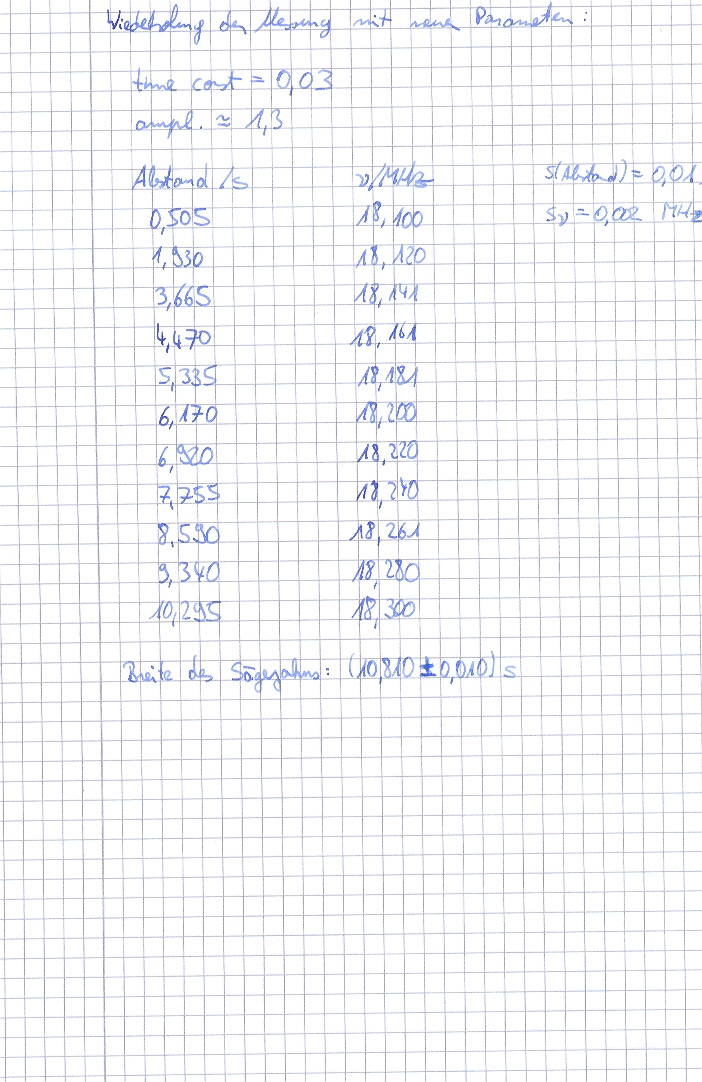 Wiederholung der Messung mit neuen Parametern:
time const = 0,03
ampl. ≈ 1,3
Abstand /s ν/MHz S(Abstand) = 0,01
0,505 18,100 Sν = 0,002 MHz
1,930 18,120
3,665 18,141
4,470 18,161
5,335 18,181
6,170 18,200
6,920 18,220
7,755 18,240
8,590 18,261
9,340 18,280
10,295 18,300
Breite des Sägezahns: (10,810 ± 0,010) s